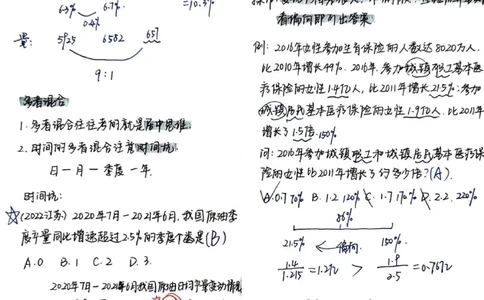 6.3% 6.7% =10.3%
0.4%
量: 5925 6582 657
9:1
多者混合
1. 多者混合往往考间就是居中思维
2. 时间的多者混合注意时间坑:
日一月一季度一年.
时间坑:
☆(2022江苏) 2020年7月-2021年6月,我国原油季
度产量同比增速超过2.5%的季度个数是(B)
A.0 B.1 C.2 D.3.
2020年7月-2021年6月我国原油日均产量变动情况
看偏向即可出答案
例: 2016年女性参加生育保险的人数达8020万人,
比2010年增长49%. 2016年,参加城镇职工基本医
疗保险的女性1.4亿人,比2011年增长21.5%;参加
城镇居民基本医疗保险的女性1.9亿人,比2011年
增长了1.5倍.150%
问: 2016年参加城镇职工和城镇居民基本医疗保
险的女性比2011年增长了约多少倍?(A).
A.0.7 70% B. 1.2 120% C. 1.7 170% D. 2.2. 220%
86%
21.5% ← 偏向. 150%.
1.4/1.215=1.2亿 > 1.9/2.5=0.76亿